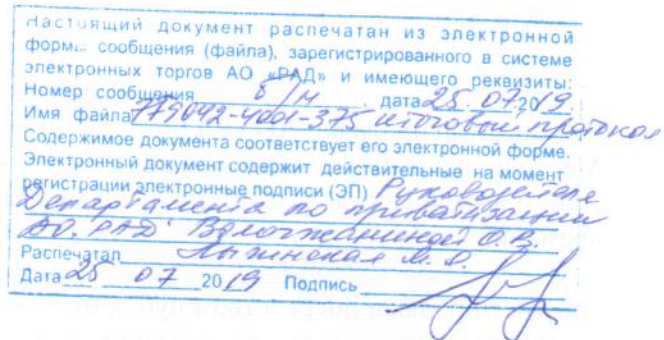 Настоящий документ распечатан из электронной
формы сообщения (файла), зарегистрированного в системе
электронных торгов АО «РАД» и имеющего реквизиты:
Номер сообщения б/н, дата 25.07.2019.
Имя файла 779042-4001-375 итоговый протокол
Содержимое документа соответствует его электронной форме.
Электронный документ содержит действительные на момент
регистрации электронные подписи (ЭП) Руководителя
Департамента по приватизации
АО "РАД" Вологжаниной О.В.
Распечатал М.
Дата 25 07 2019 Подпись